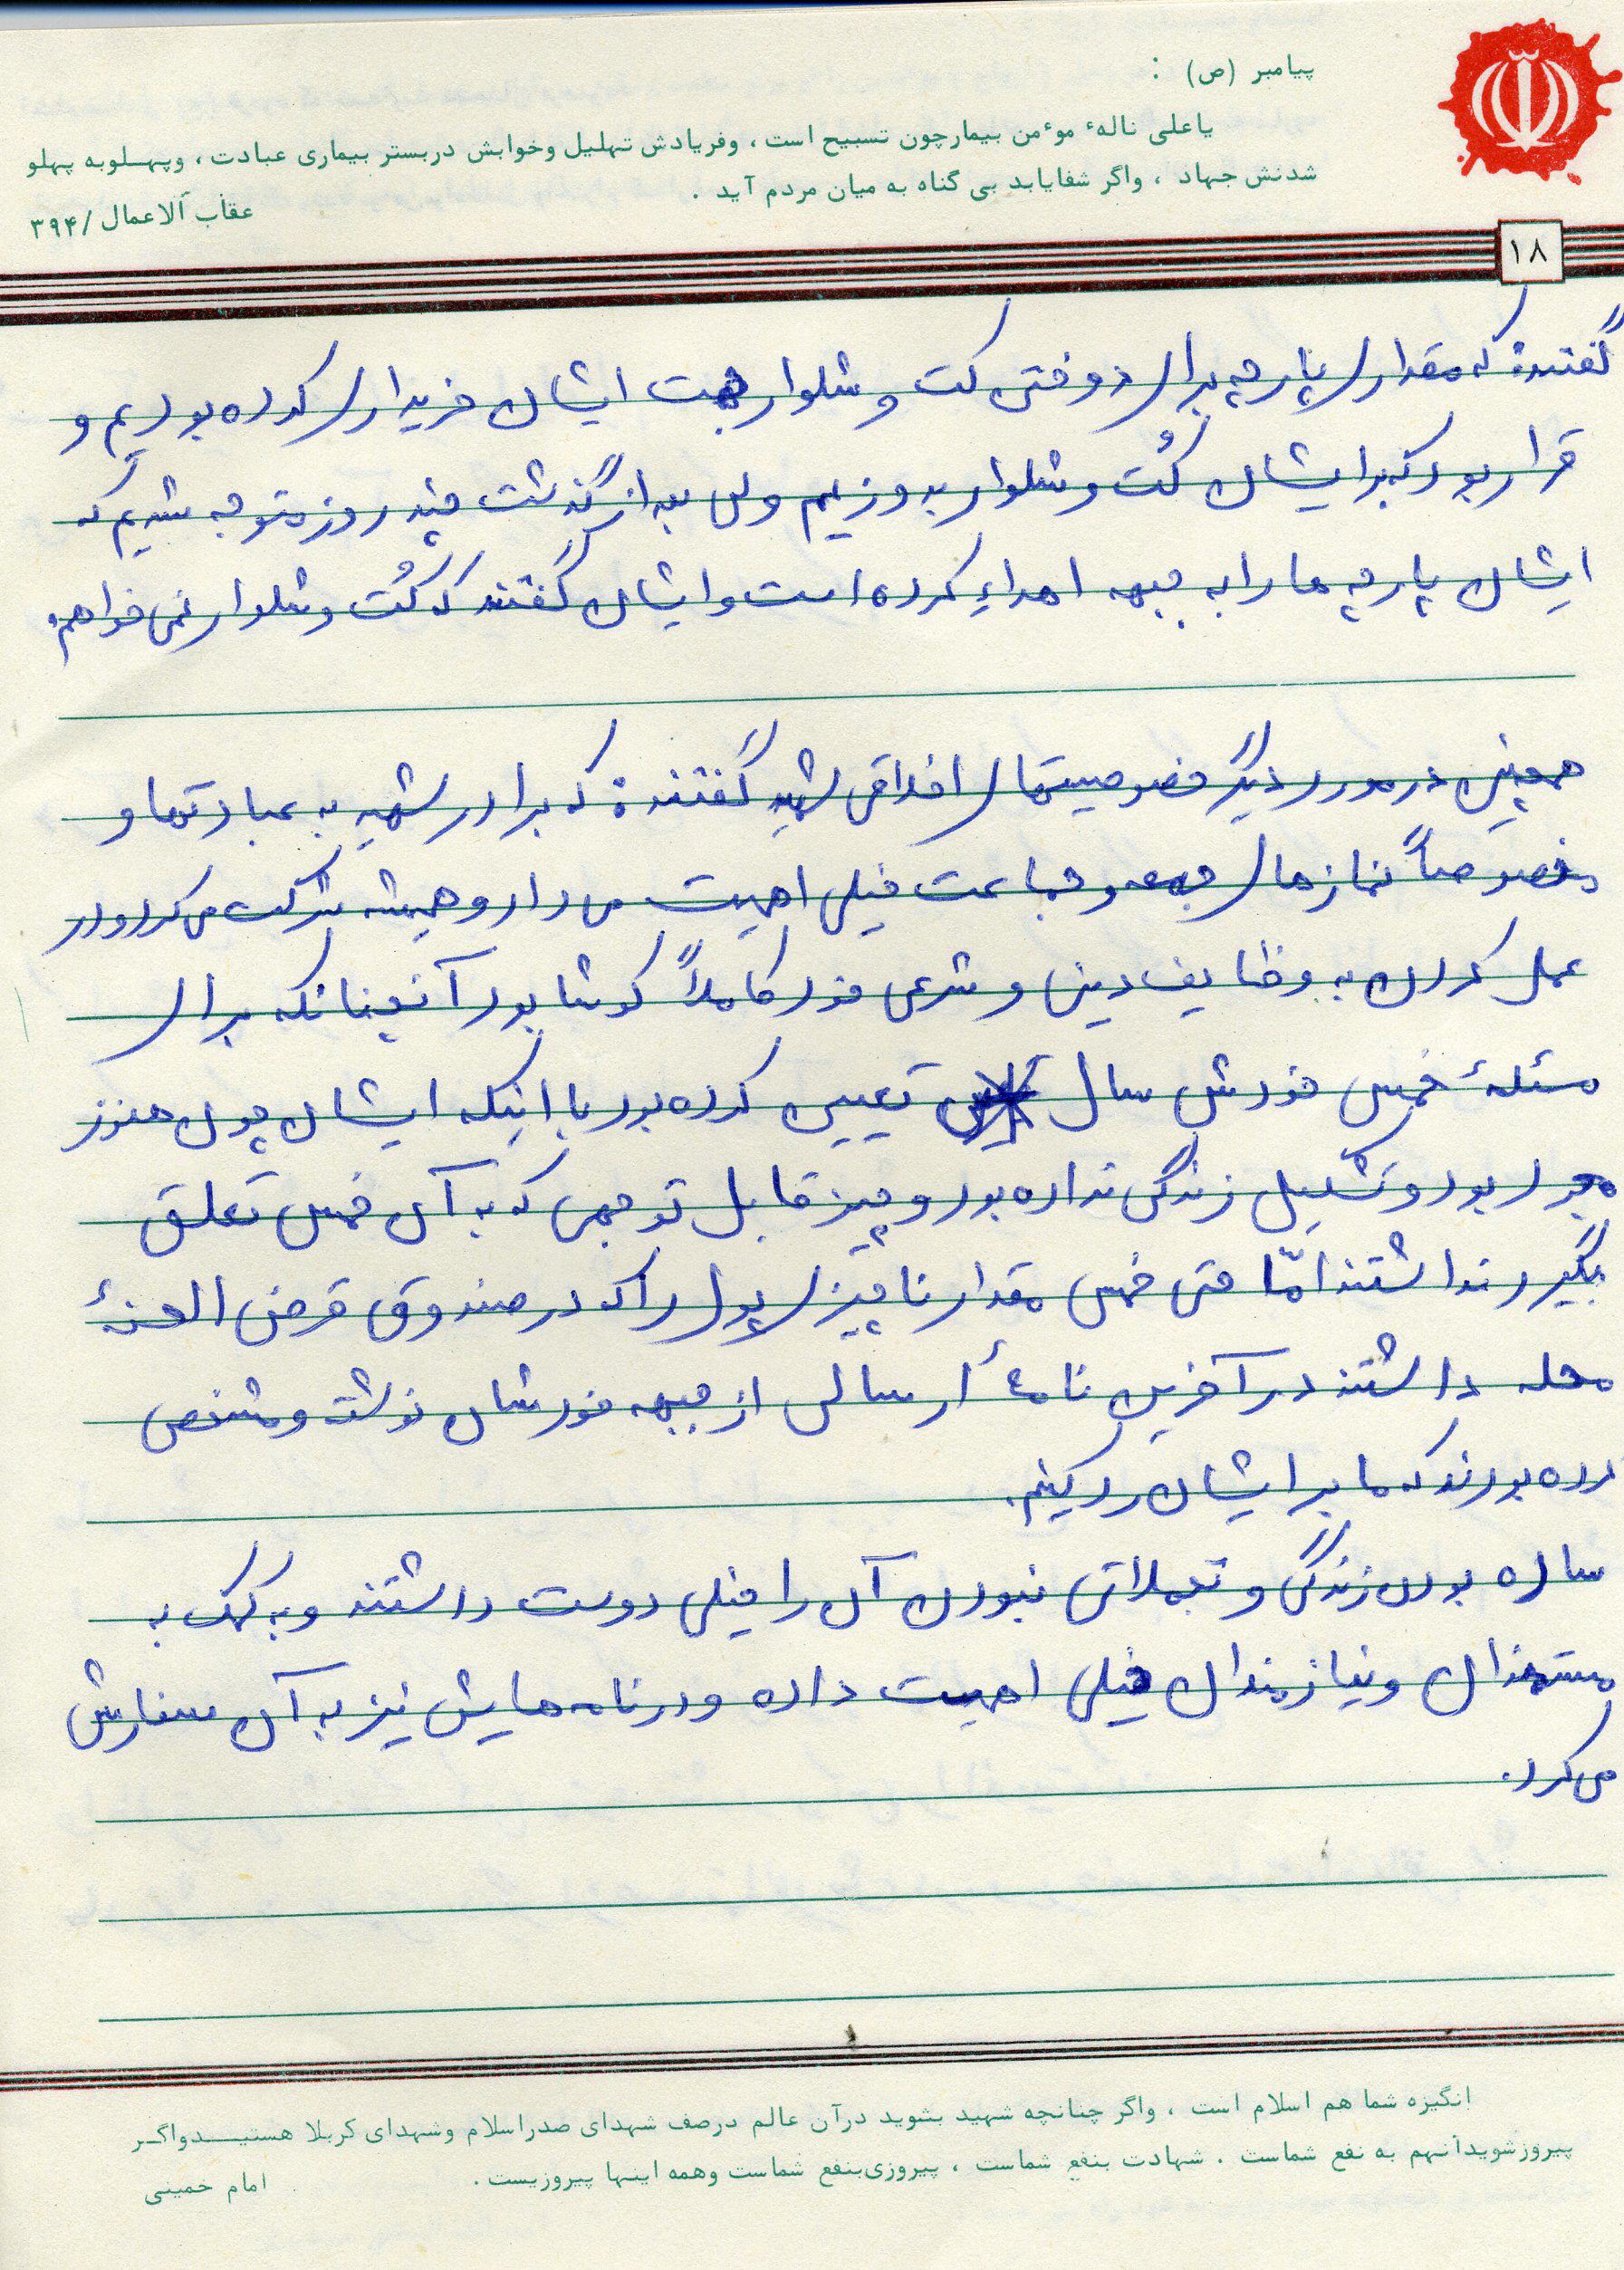 پیامبر (ص) :
یاعلی نالهٔ موٴمن بیمارچون تسبیح است ، وفریادش تهلیل وخوابش دربستر بیماری عبادت ، وپهــلوبه پهلو
شدنش جهاد ، واگر شفایابد بی گناه به میان مردم آید .
عقاب آلاعمال /۳۹۴
۱۸
گفتند: که مقداری پارچه برای دوختن کت و شلوار جهت ایشان خریداری کرده بودیم و
قرار بود که برایشان کُت و شلوار بدوزیم ولی بعد از گذشت چند روز متوجه شدیم که
ایشان پارچه ها را به جبهه اهداء کرده است و ایشان گفتند که کُت و شلوار نمی خواهم.
همچنین در مورد دیگر خصوصیتهای اخلاقی شهید گفتند: که برادر شهید به عبادتها و
مخصوصاً نمازهای جمعه و جماعت خیلی اهمیت می داد و همیشه شرکت می کرد و در
عمل کردن به وظایف دینی و شرعی خود کاملاً کوشا بود آنچنانکه برای
مسئلهٔ خمس خودش سال تعیین کرده بود با اینکه ایشان چون هنوز
مجرد بود و تشکیل زندگی نداده بود و چیز قابل توجهی که به آن خمس تعلق
بگیرد نداشتند امّا حتی خمس مقدار ناچیزی پول را که در صندوق قرض الحسنهٔ
محله داشتند در آخرین نامهٔ ارسالی از جبهه خودشان نوشته و مشخص
کرده بودند که ما برایشان رد کنیم.
ساده بودن زندگی و تجملاتی نبودن آن را خیلی دوست داشتند و به کمک به
مستمندان و نیازمندان خیلی اهمیت داده و در نامه هایش نیز به آن سفارش
می کرد.
انگیزه شما هم اسلام است ، واگر چنانچه شهید بشوید درآن عالم درصف شهدای صدراسلام وشهدای کربلا هستیــدواگــر
پیروزشویدآنهم به نفع شماست . شهادت بنفع شماست ، پیروزی‌بنفع شماست وهمه اینها پیروزیست .
امام خمینی